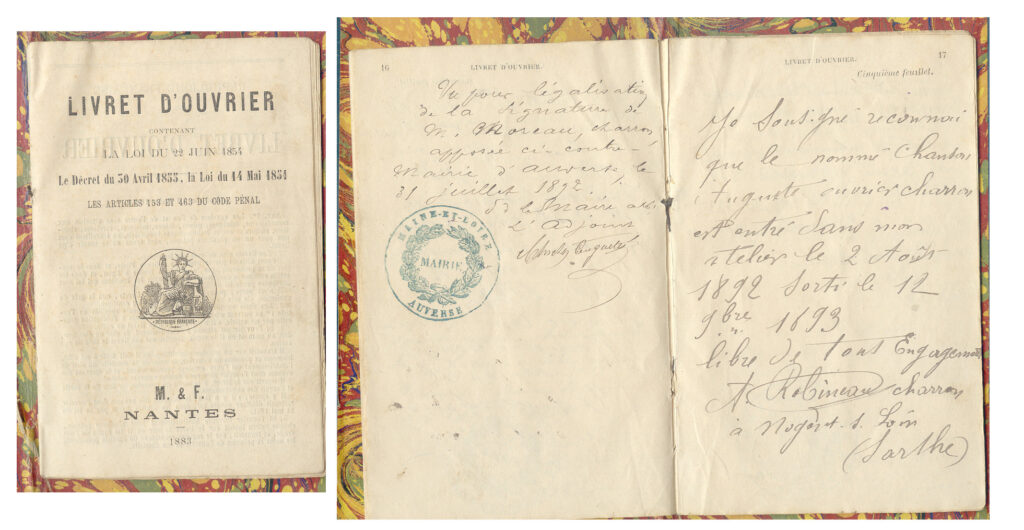 LIVRET D'OUVRIER
CONTENANT
LA LOI DU 22 JUIN 1854
Le Décret du 30 Avril 1855, la Loi du 14 Mai 1851
LES ARTICLES 153 ET 463 DU CODE PÉNAL
RÉPUBLIQUE FRANÇAISE
M. & F.
NANTES
1883
16
LIVRET D'OUVRIER.
Vu pour législation
de la signature de
M. Moreau, charron
apposée ci-contre
Mairie d'Auverse le
31 juillet 1892.
Le Maire
L'adjoint
MAINE-ET-LOIRE
MAIRIE
AUVERSE
17
LIVRET D'OUVRIER.
Cinquième feuillet.
Je Soussigné reconnai
que le nommé Chanson
Auguste ouvrier charron
est entré dans mon
atelier le 2 Août
1892 Sorti le 12
9bre 1893
libre de tout Engagement
A. Robineau charron
à Nogent s. Loir
(Sarthe)